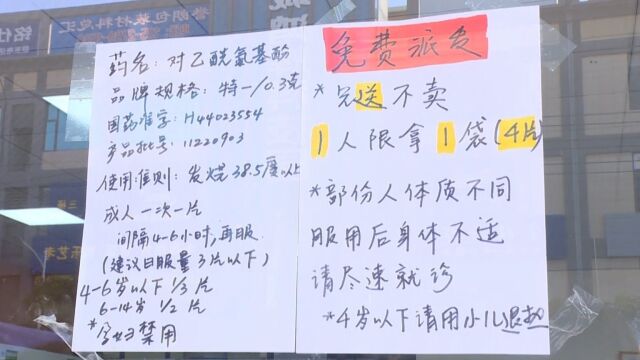 药名：对乙酰氨基酚
品牌规格：特一/0.3克
国药准字：H44023554
产品批号：11220903
使用准则：发烧38.5度以上
成人一次一片
间隔4-6小时,再服
(建议日服量3片以下)
4-6岁以下 1/3片
6-14岁 1/2片
*孕妇禁用
免费派发
*只送不卖
1人限拿1袋(4片)
*部份人体质不同
服用后身体不适
请尽速就诊
*4岁以下请用小儿退热